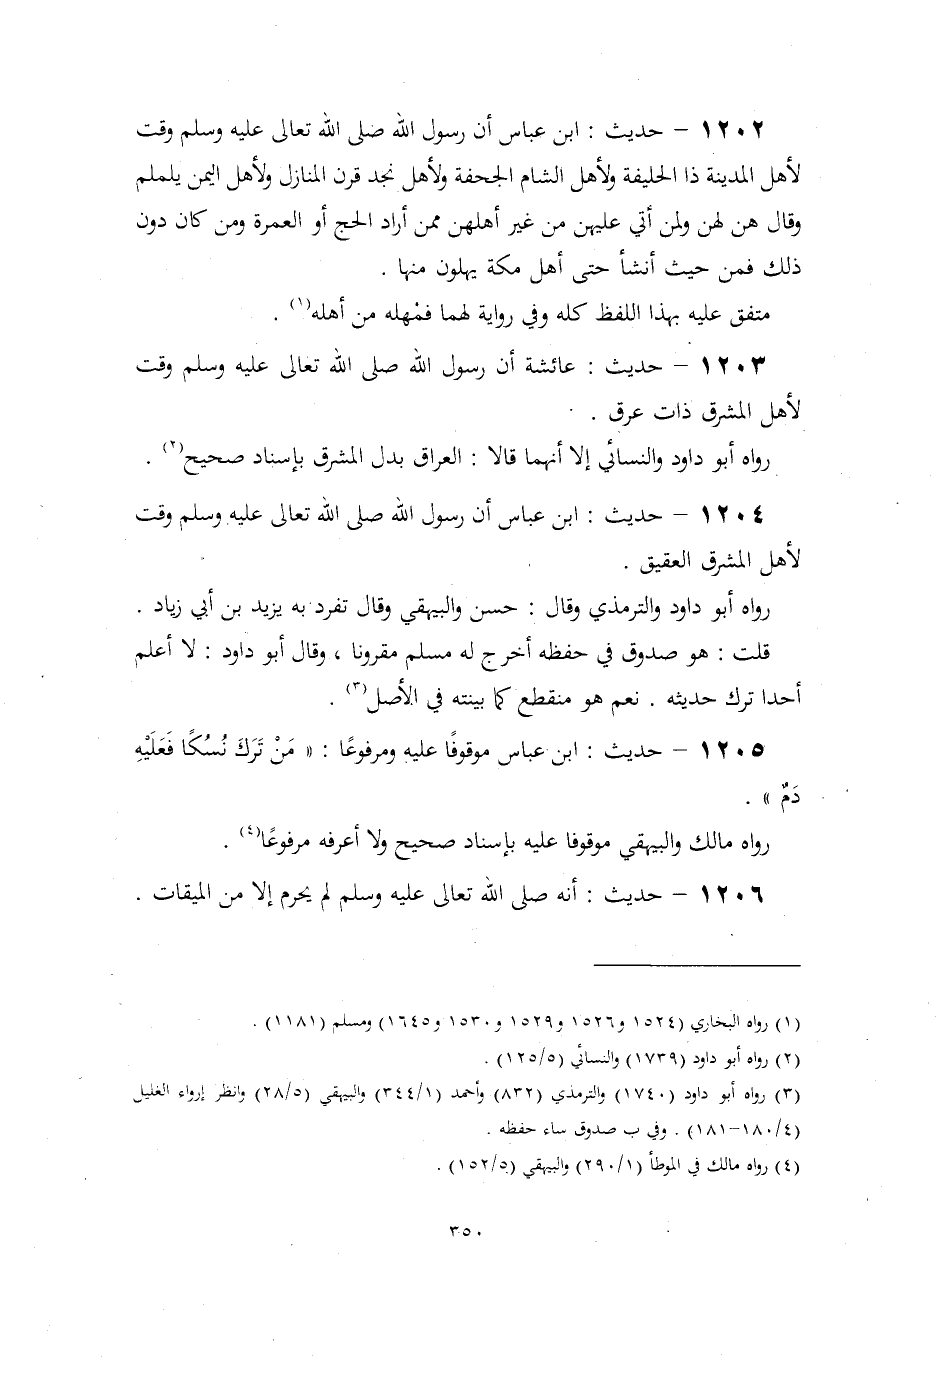 ١٢٠٢ - حديث : ابن عباس أن رسول الله صلى الله تعالى عليه وسلم وقت
لأهل المدينة ذا الحليفة ولأهل الشام الجحفة ولأهل نجد قرن المنازل ولأهل اليمن يلملم
وقال هن لهن ولمن أتي عليهن من غير أهلهن ممن أراد الحج أو العمرة ومن كان دون
ذلك فمن حيث أنشأ حتى أهل مكة يهلون منها .
متفق عليه بهذا اللفظ كله وفي رواية لهما فمْهله من أهله(١) .
١٢٠٣ - حديث : عائشة أن رسول الله صلى الله تعالى عليه وسلم وقت
لأهل المشرق ذات عرق .
رواه أبو داود والنسائي إلا أنهما قالا : العراق بدل المشرق بإسناد صحيح(٢) .
١٢٠٤ - حديث : ابن عباس أن رسول الله صلى الله تعالى عليه وسلم وقت
لأهل المشرق العقيق .
رواه أبو داود والترمذي وقال : حسن والبيهقي وقال تفرد به يزيد بن أبي زياد .
قلت : هو صدوق في حفظه أخرج له مسلم مقرونا ، وقال أبو داود : لا أعلم
أحدا ترك حديثه . نعم هو منقطع كما بينته في الأصل(٣) .
١٢٠٥ - حديث : ابن عباس موقوفًا عليه ومرفوعًا : « مَنْ تَرَكَ نُسُكًا فَعَلَيْهِ
دَمٌ » .
رواه مالك والبيهقي موقوفا عليه بإسناد صحيح ولا أعرفه مرفوعًا(٤) .
١٢٠٦ - حديث : أنه صلى الله تعالى عليه وسلم لم يحرم إلا من الميقات .
(١) رواه البخاري (١٥٢٤ و١٥٢٦ و١٥٢٩ و١٥٣٠ و١٦٤٥) ومسلم (١١٨١) .
(٢) رواه أبو داود (١٧٣٩) والنسائي (١٢٥/٥) .
(٣) رواه أبو داود (١٧٤٠) والترمذي (٨٣٢) وأحمد (٣٤٤/١) والبيهقي (٢٨/٥) وانظر إرواء الغليل
(١٨٠/٤-١٨١) . وفي ب صدوق ساء حفظه .
(٤) رواه مالك في الموطأ (٢٩٠/١) والبيهقي (١٥٢/٥) .
٣٥٠